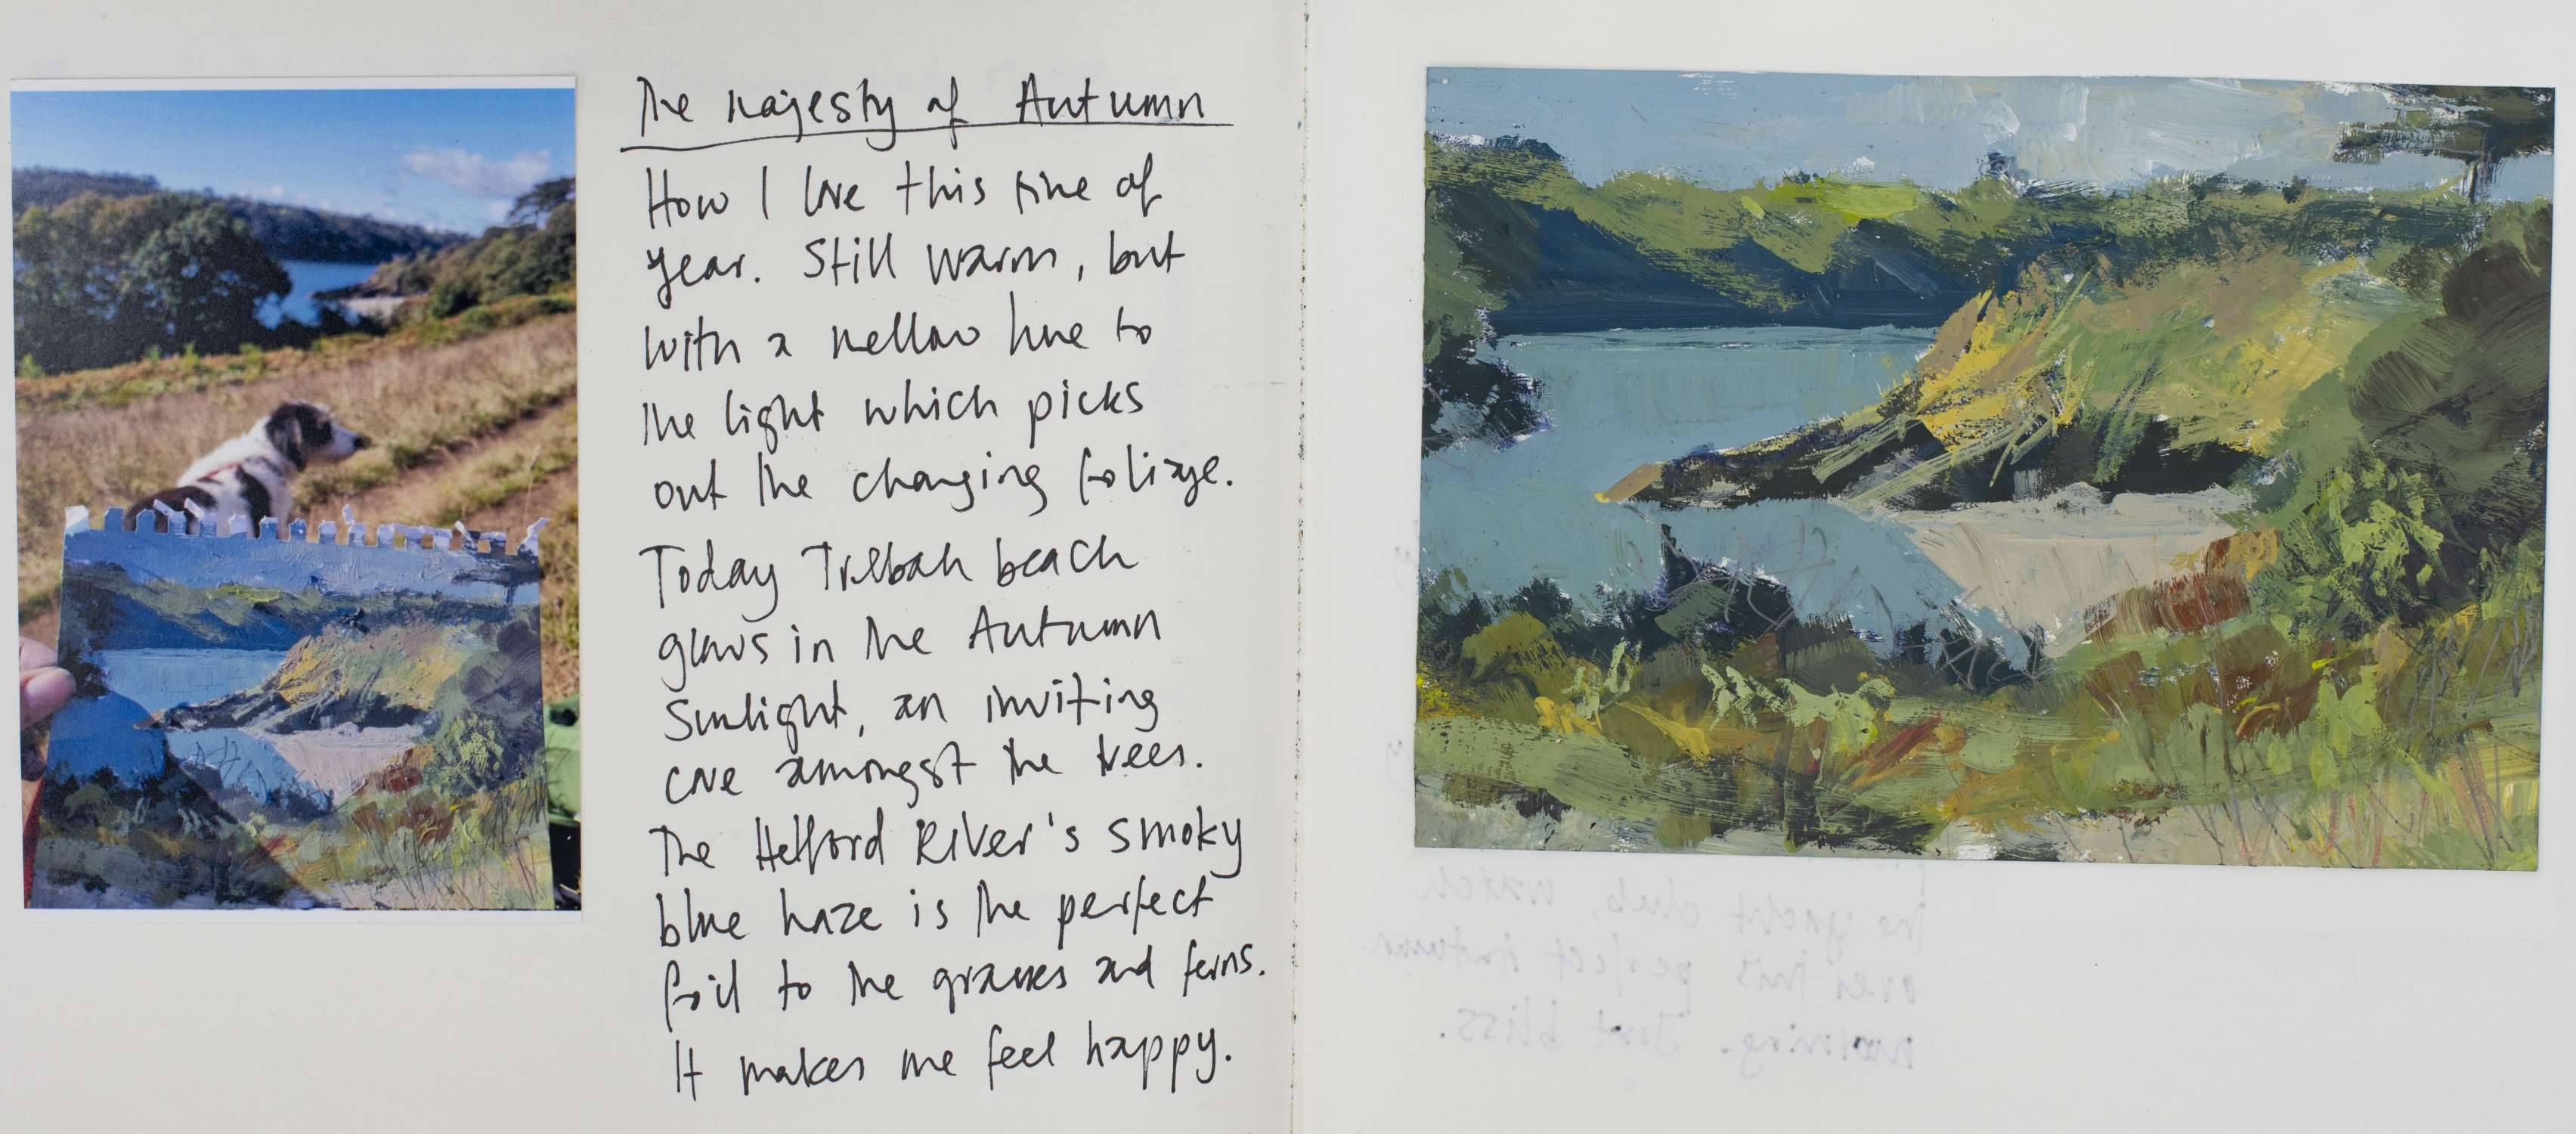 The Majesty of Autumn
How I love this time of
year. Still warm, but
with a mellow hue to
the light which picks
out the changing foliage.
Today Trebah beach
glows in the Autumn
Sunlight, an inviting
cove amongst the trees.
The Helford River's smoky
blue haze is the perfect
foil to the grasses and ferns.
It makes me feel happy.
the yacht club, watch
over this perfect Autumn
morning. Just bliss.